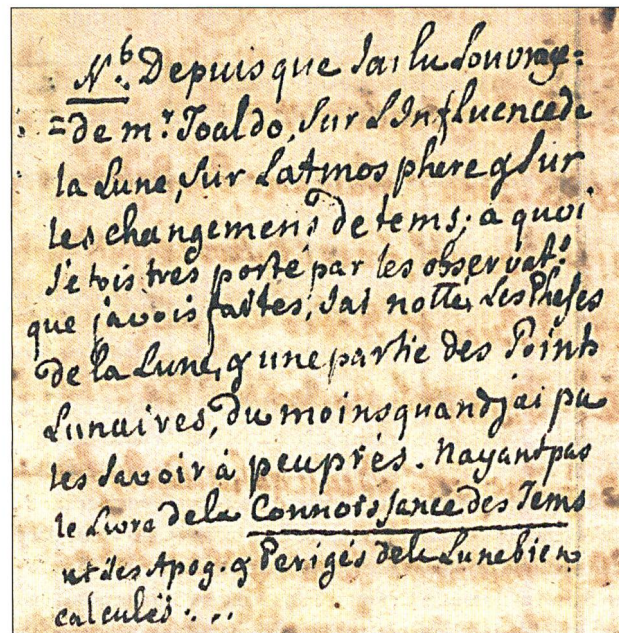 N.b Depuis que Jai lu Louvrage=
=de mr. Toaldo, Sur LInfluence de
la Lune, Sur Latmosphere & Sur
les changemens de tems; a quoi
J'etois tres porté par les observat.s
que j'avois faites, Jai notté, Les Phases
de la Lune, & une partie des Points
Lunaires, du moins quand jai pu
les Savoir à peuprés. Nayant pas
le Livre de la Connoissance des Tems
et des Apog. & Perigés de la Lune bien
calculés . . .